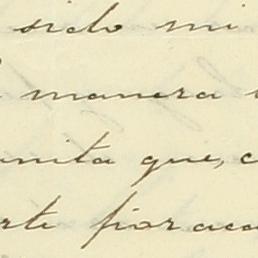 sido mi
manera
nita que, c
rte por aca